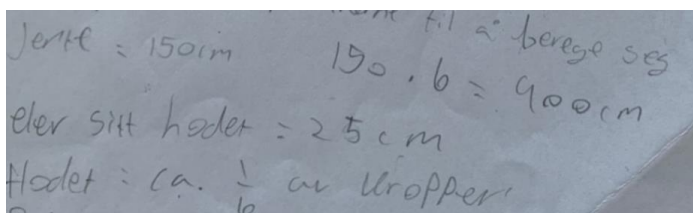 til å berege seg
Jente = 150cm 150 . 6 = 900cm
eler sitt hodet = 25cm
Hodet = ca. 1/6 av kroppen